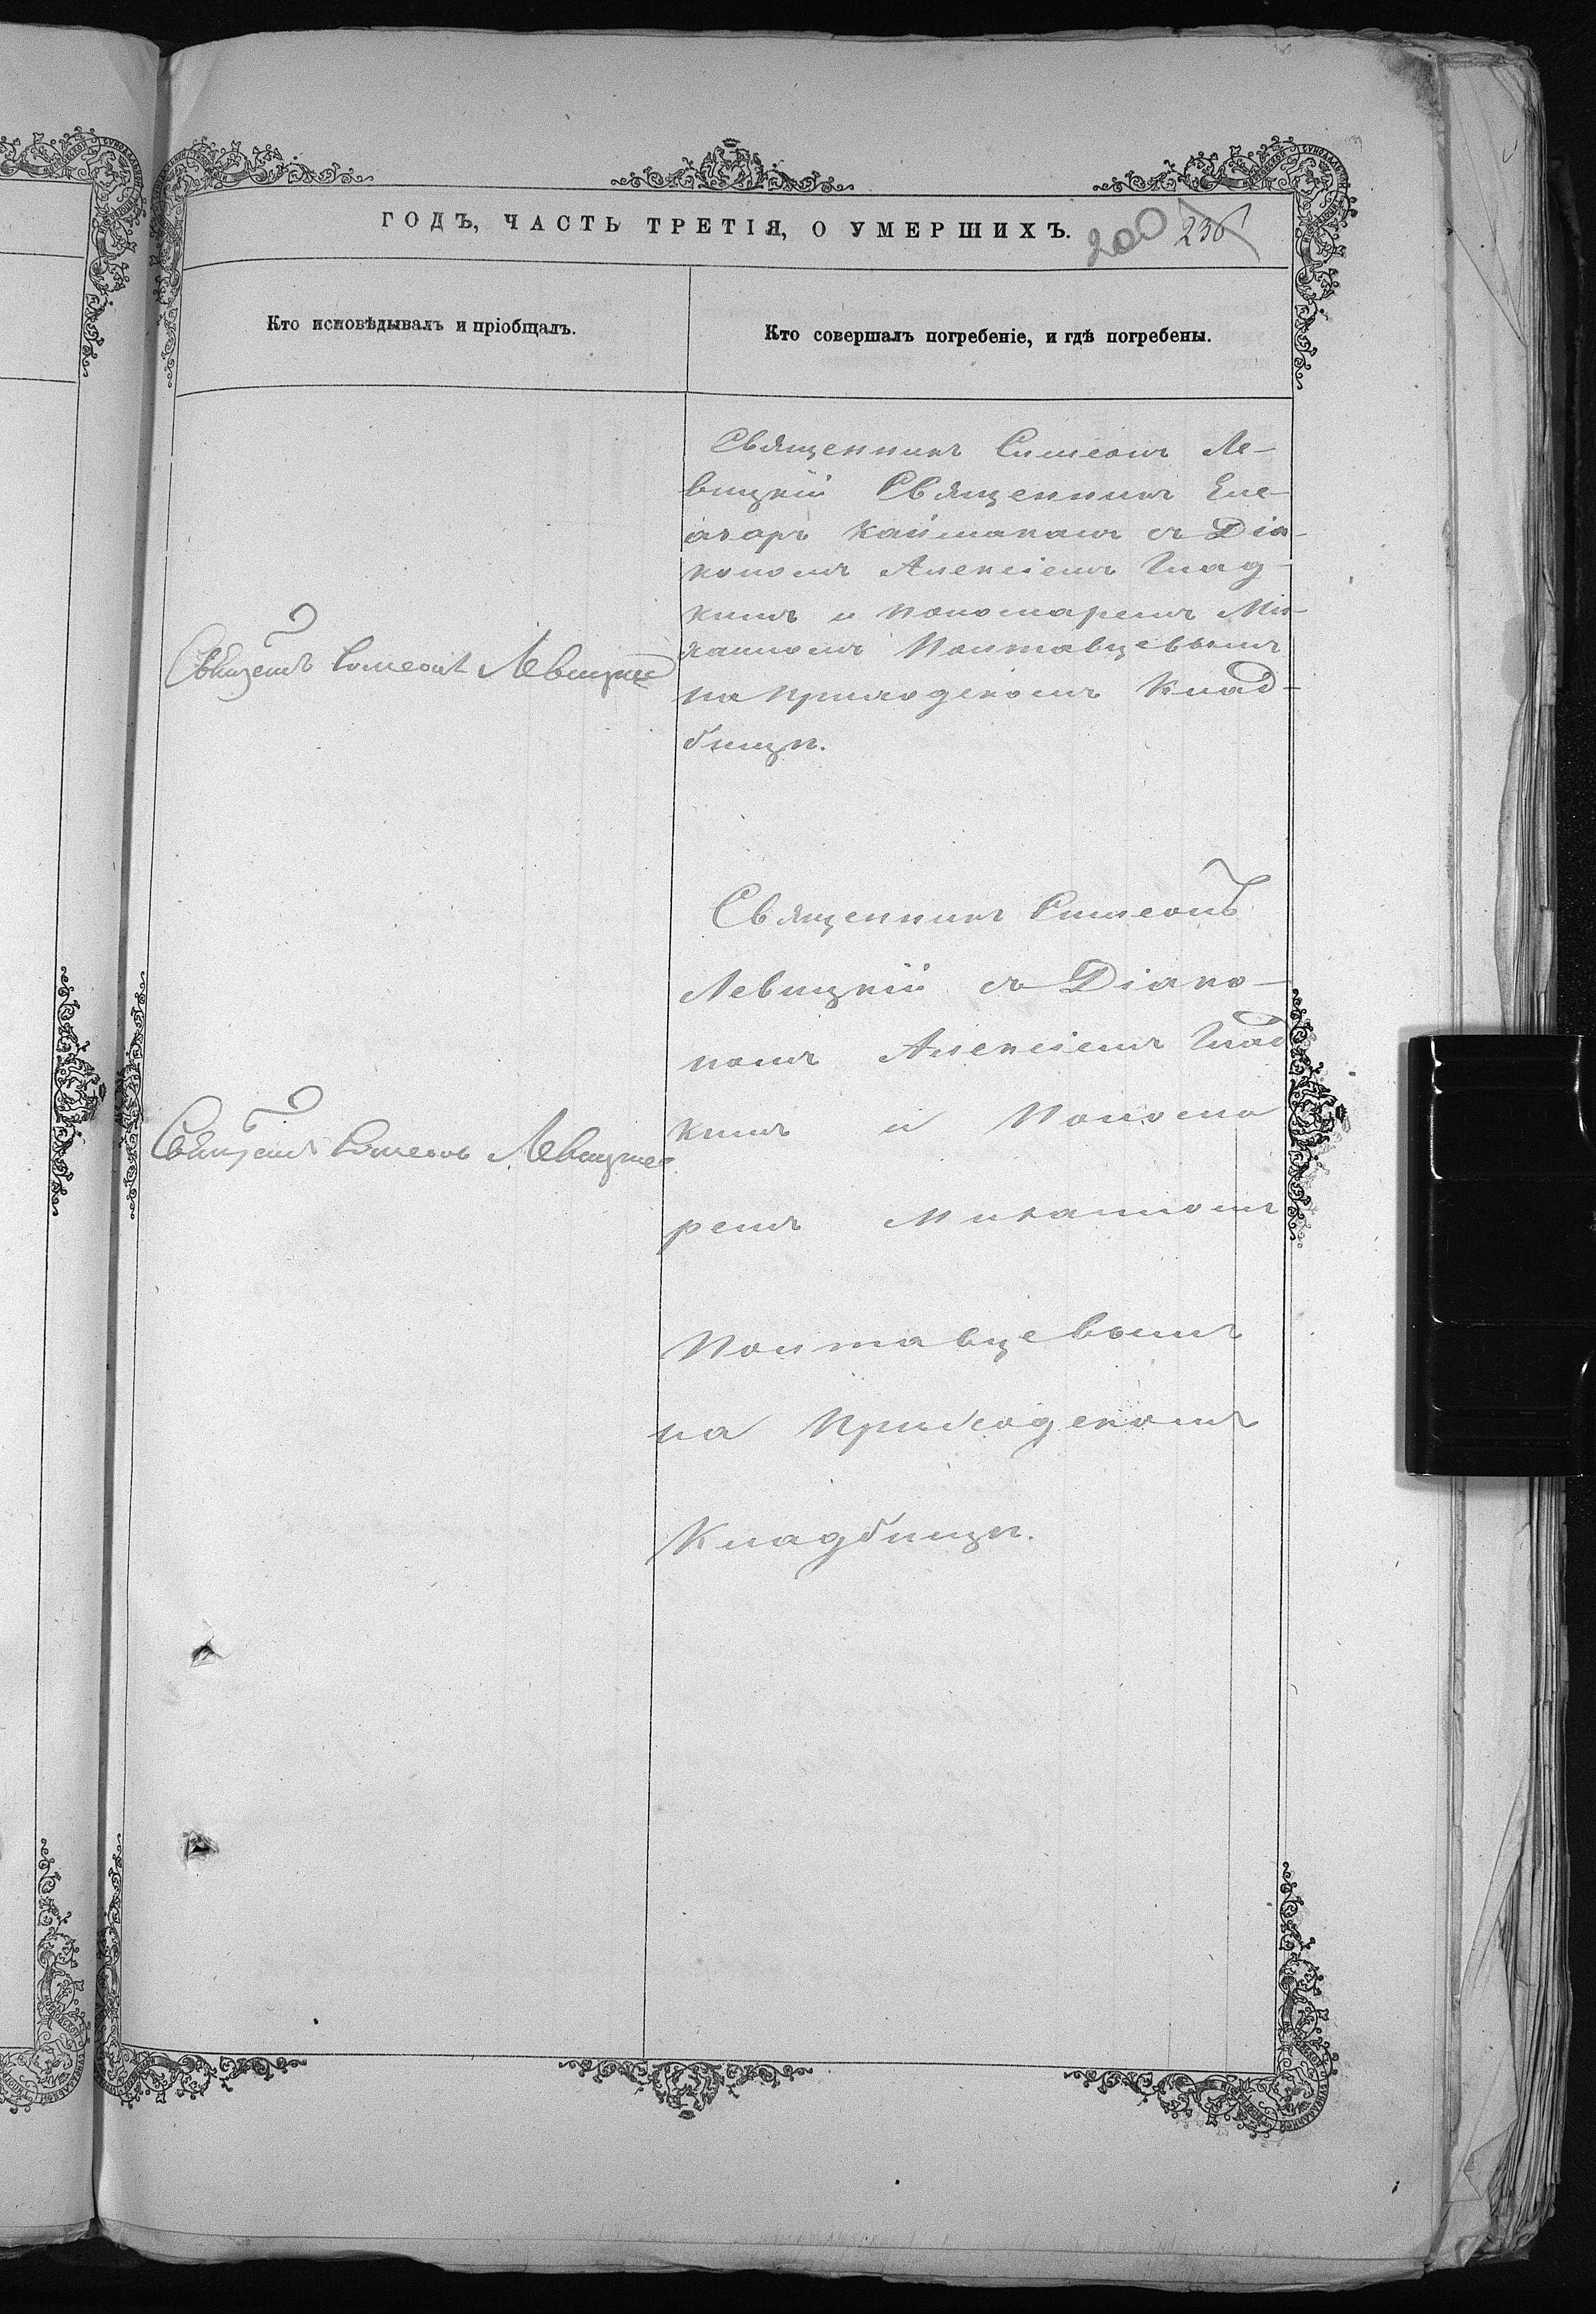 ГОДЪ, ЧАСТЬ ТРЕТІЯ, О УМЕРШИХЪ.
200 236
Кто исповѣдывалъ и пріобщалъ.
Кто совершалъ погребеніе, и гдѣ погребены.
Священникъ Симеонъ Ле-
вицкій Священникъ Еле-
азаръ Каймаканъ съ Діа-
кономъ Алексіемъ Глад-
кимъ и Пономаремъ Ми-
хаиломъ Полтавцевымъ
на приходскомъ Клад-
бищѣ.
Священ Симеонъ Левицкій
Священникъ Симеонъ
Левицкій съ Діако-
номъ Алексіемъ Глад
кимъ и Понома
ремъ Михаиломъ
Полтавцевымъ
на Приходскомъ
Кладбищѣ.
Священ Симеонъ Левицкій